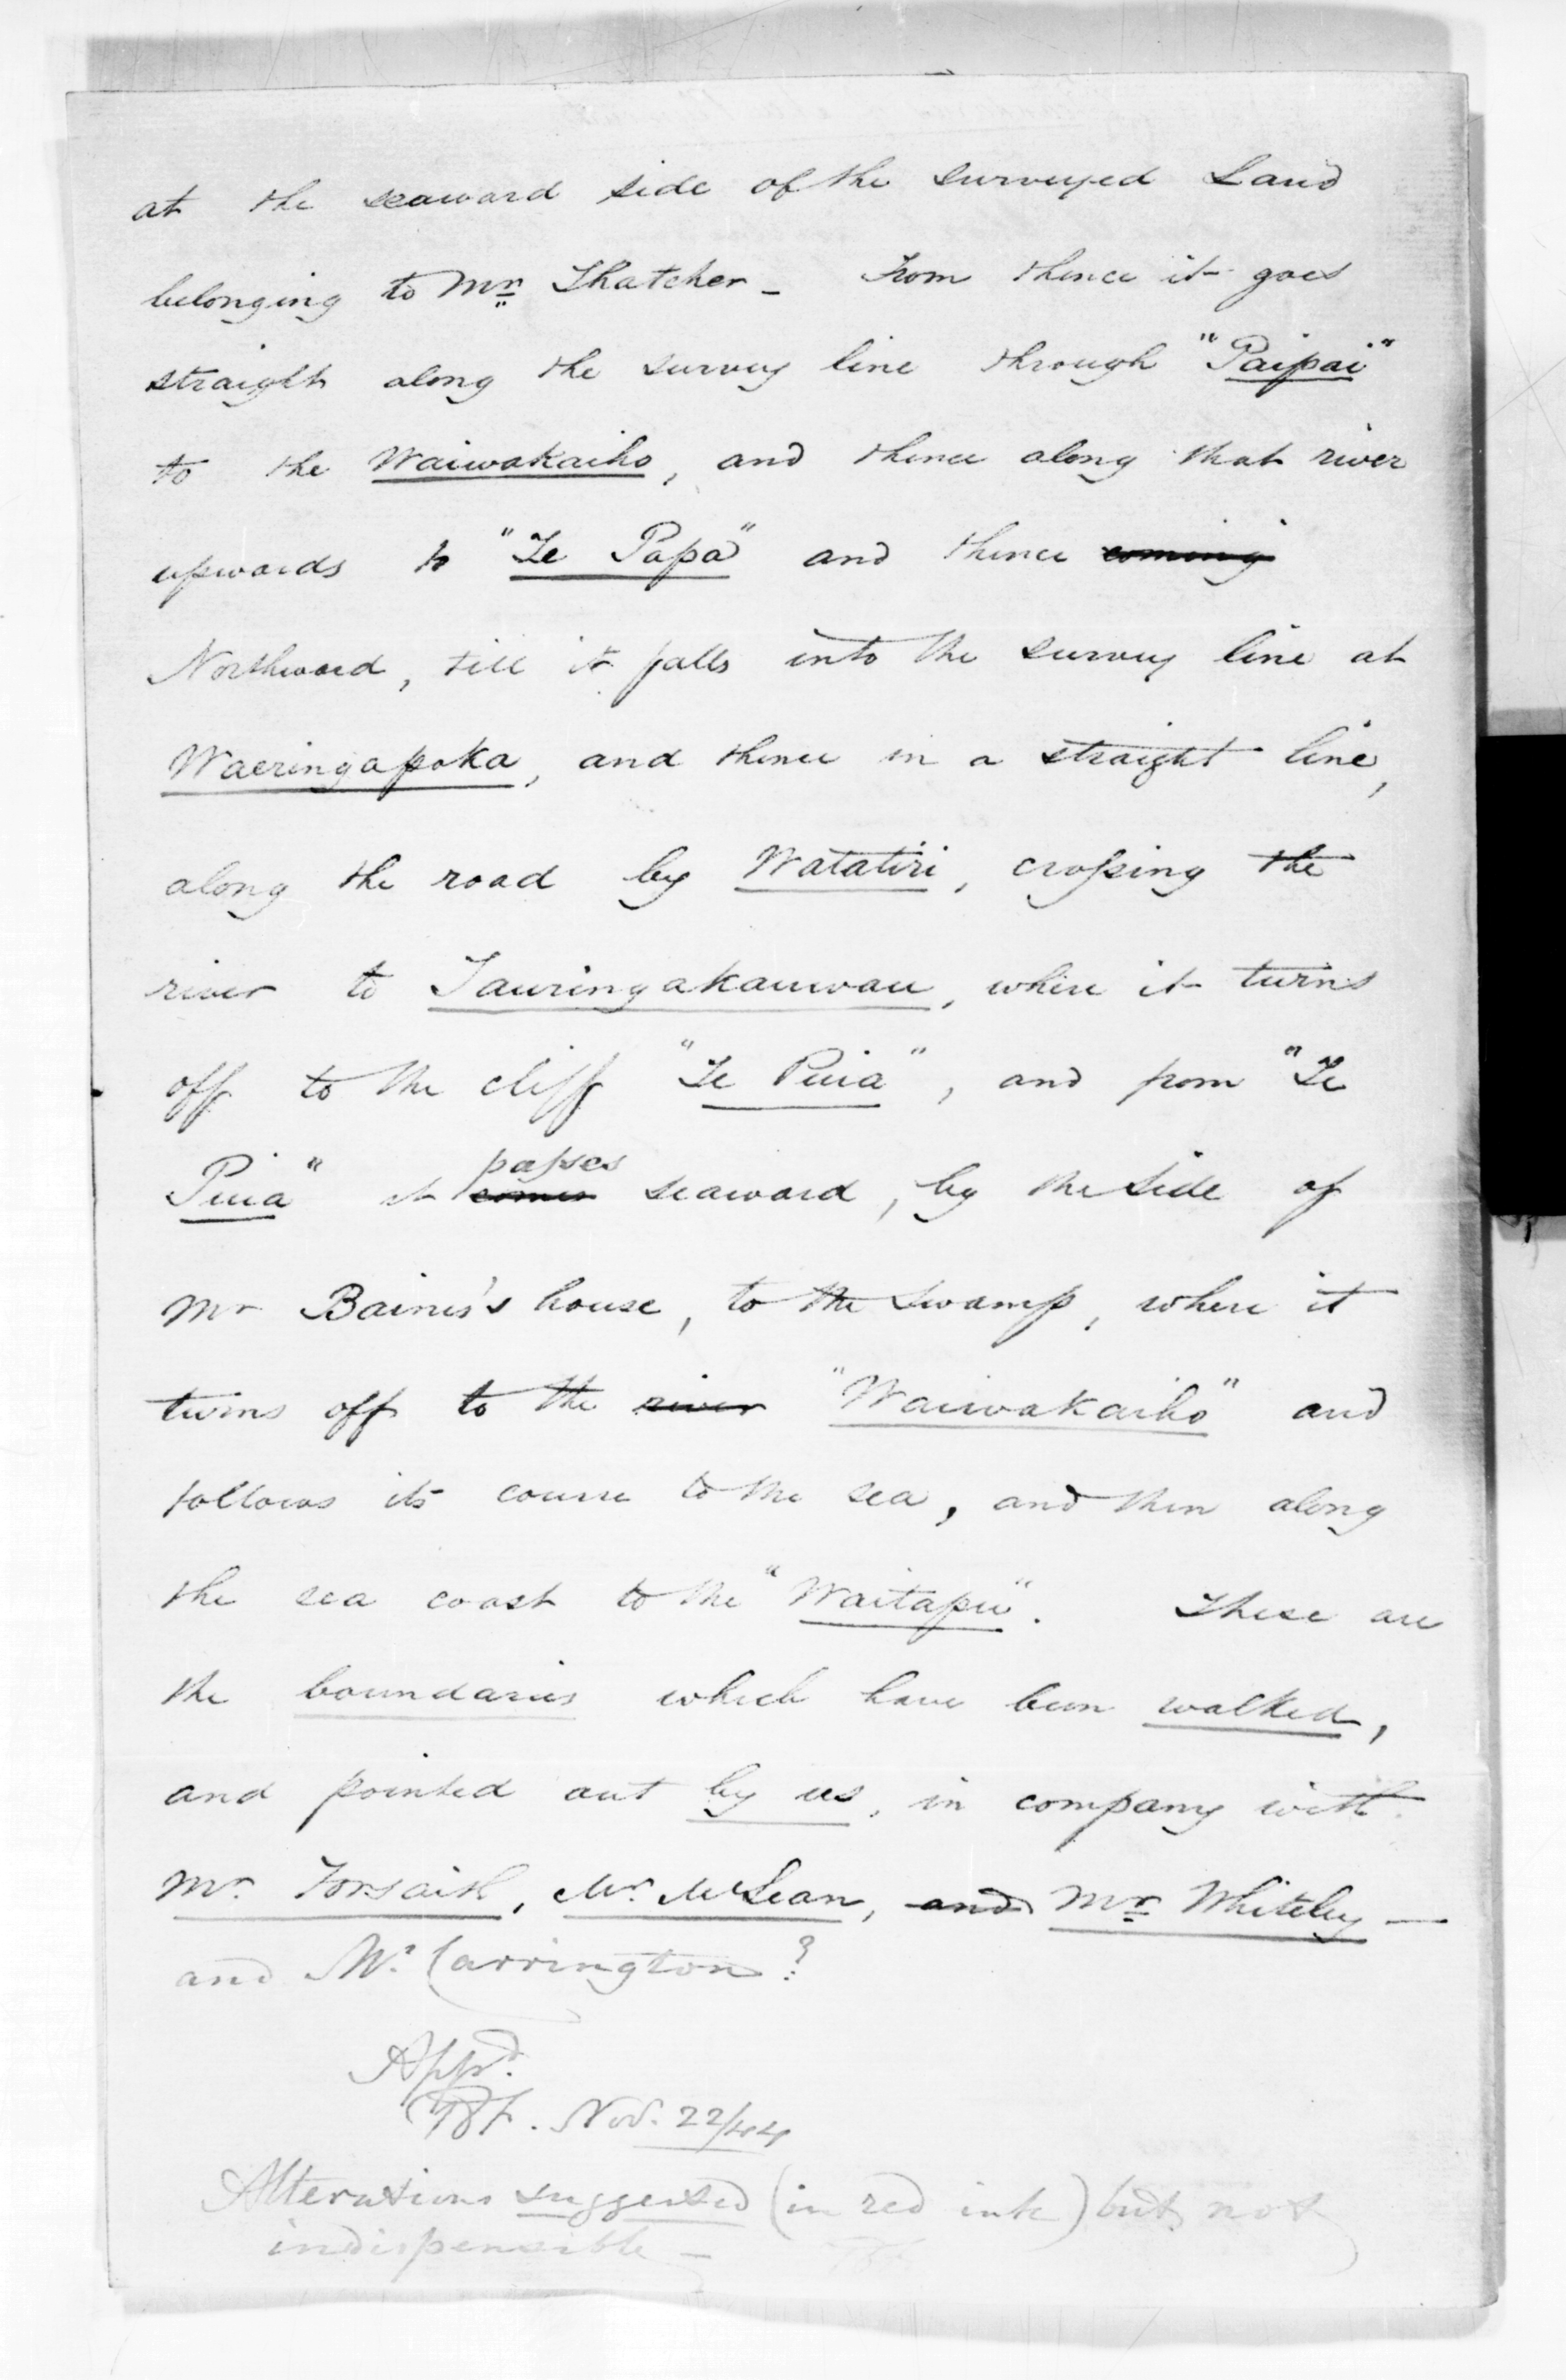 at the seaward side of the surveyed Land
belonging to Mr Thatcher - From thence it goes
straight along the survey line through "Paipai"
to the Waiwakaiho, and thence along that river
upwards to "Te Papa" and thence coming
Northward, till it falls into the survey line at
Waeringapoka, and thence in a straight line,
along the road by Watatiri, crossing the
river to Tauringakauwau, where it turns
off to the cliff "Te Puia", and from "Te
Puia" it comes passes seaward, by the side of
Mr Baines's house, to the swamp, where it
turns off to the river "Waiwakaiho" and
follows its course to the sea, and then along
the sea coast to the "Waitapu". These are
the boundaries which have been walked,
and pointed out by us, in company with
Mr. Forsaith, Mr. McLean, and Mr Whiteley —
and Mr. Carrington?
Appd.
Nov. 22/44
Alterations suggested (in red ink) but not
indispensible -